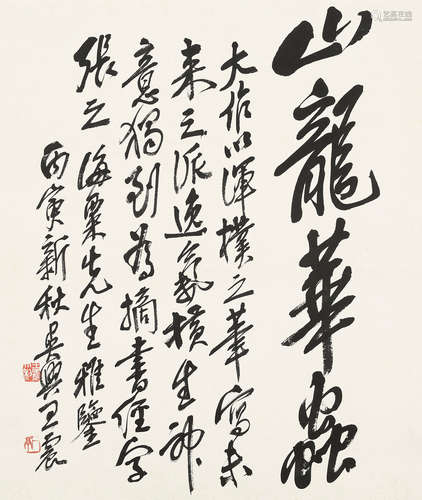 山龍華蟲
大作以渾樸之筆寫未
來之派逸氣橫生神
意獨到為摘書經字
張之 海粟先生雅鑒
丙寅新秋吳興王震